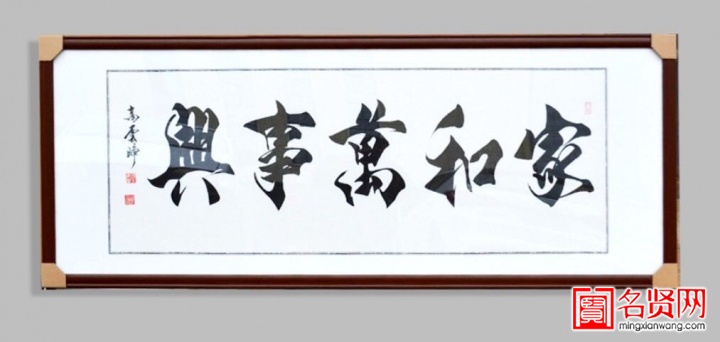 家和萬事興
名贤网
mingxianwang.com